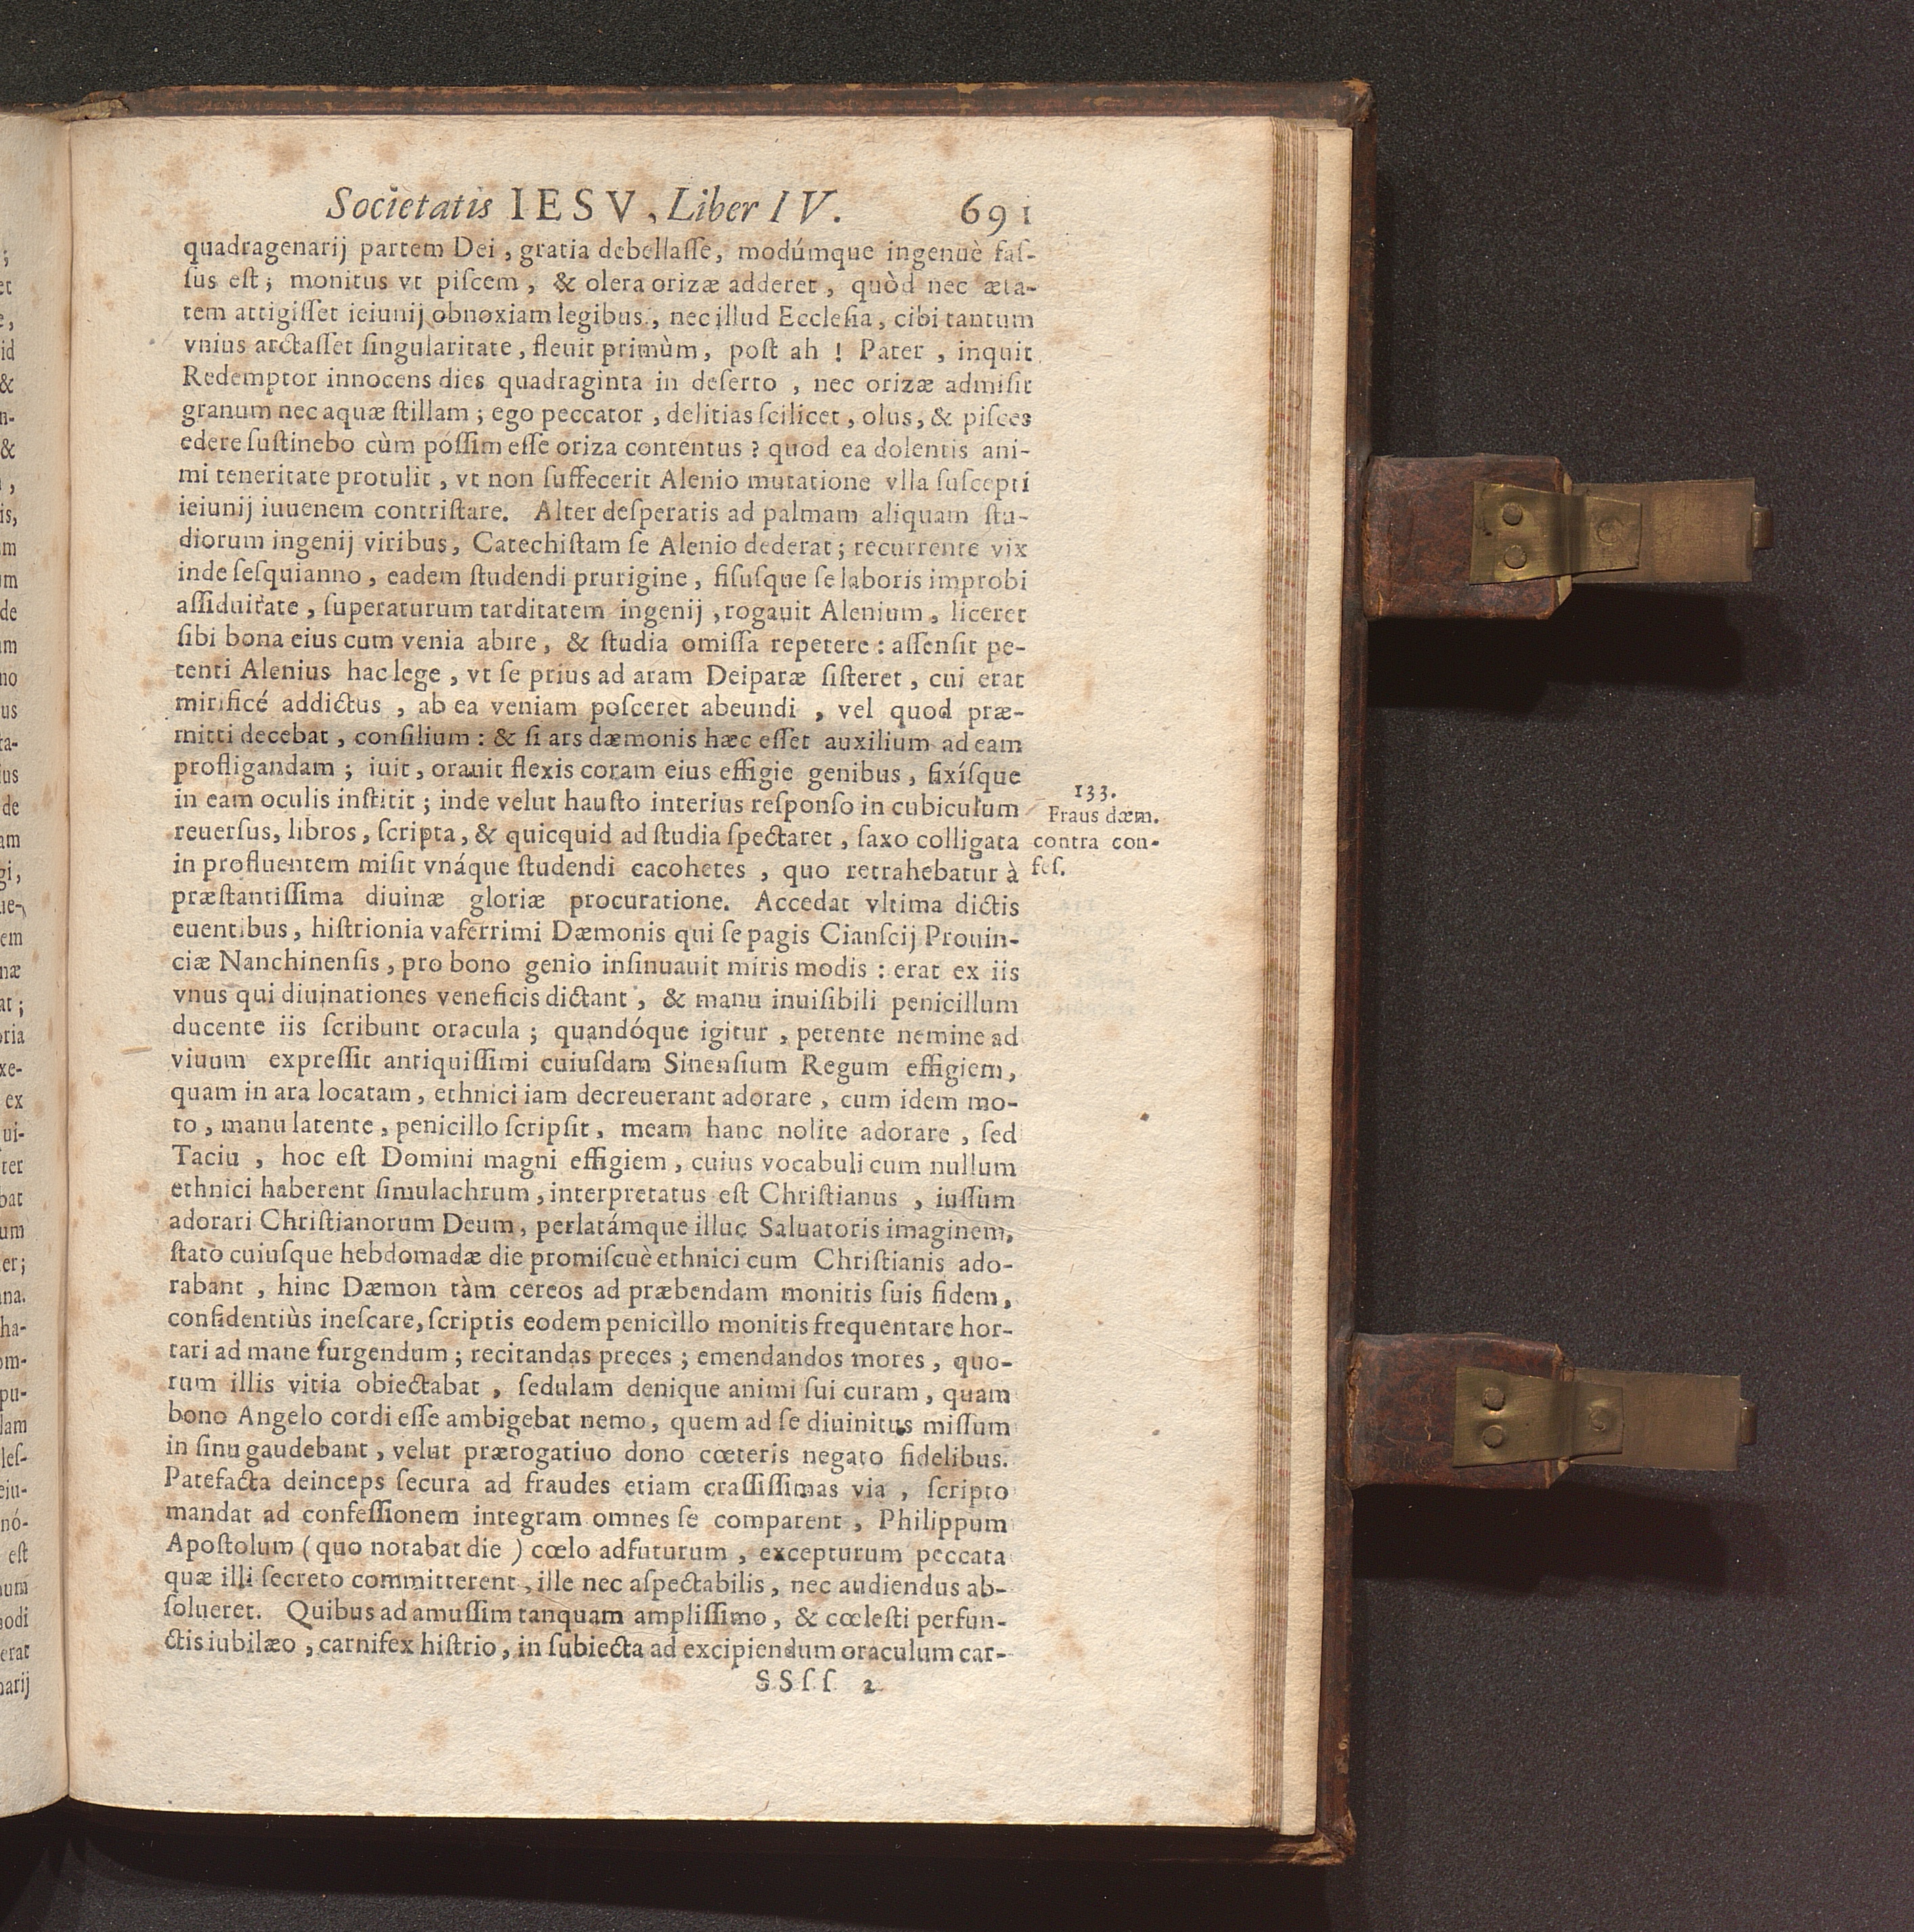 Societatis IESV, Liber IV. 691
quadragenarij partem Dei, gratia debellaſſe, modúmque ingenuè faſ-
ſus eſt; monitus vt piſcem, & olera orizæ adderet, quòd nec æta-
tem attigiſſet ieiunij obnoxiam legibus, nec illud Eccleſia, cibi tantum
vnius arctaſſet ſingularitate, fleuit primùm, poſt ah ! Pater, inquit
Redemptor innocens dies quadraginta in deſerto, nec orizæ admiſit
granum nec aquæ ſtillam; ego peccator, delitias ſcilicet, olus, & piſces
edere ſuſtinebo cùm póſſim eſſe oriza contentus ? quod ea dolentis ani-
mi teneritate protulit, vt non ſuffecerit Alenio mutatione vlla ſuſcepti
ieiunij iuuenem contriſtare. Alter deſperatis ad palmam aliquam ſtu-
diorum ingenij viribus, Catechiſtam ſe Alenio dederat; recurrente vix
inde ſeſquianno, eadem ſtudendi prurigine, fiſuſque ſe laboris improbi
aſſiduitate, ſuperaturum tarditatem ingenij, rogauit Alenium, liceret
ſibi bona eius cum venia abire, & ſtudia omiſſa repetere: aſſenſit pe-
tenti Alenius hac lege, vt ſe prius ad aram Deiparæ ſiſteret, cui erat
mirificé addictus, ab ea veniam poſceret abeundi, vel quod præ-
mitti decebat, conſilium: & ſi ars dæmonis hæc eſſet auxilium ad eam
profligandam; iuit, orauit flexis coram eius effigie genibus, fixíſque
in eam oculis inſtitit; inde velut hauſto interius reſponſo in cubiculum
reuerſus, libros, ſcripta, & quicquid ad ſtudia ſpectaret, ſaxo colligata
in profluentem miſit vnáque ſtudendi cacohetes, quo retrahebatur à
præſtantiſſima diuinæ gloriæ procuratione. Accedat vltima dictis
euentibus, hiſtrionia vaferrimi Dæmonis qui ſe pagis Cianſcij Prouin-
ciæ Nanchinenſis, pro bono genio inſinuauit miris modis: erat ex iis
vnus qui diuinationes veneficis dictant, & manu inuiſibili penicillum
ducente iis ſcribunt oracula; quandóque igitur, petente nemine ad
viuum expreſſit antiquiſſimi cuiuſdam Sinenſium Regum effigiem,
quam in ara locatam, ethnici iam decreuerant adorare, cum idem mo-
to, manu latente, penicillo ſcripſit, meam hanc nolite adorare, ſed
Taciu, hoc eſt Domini magni effigiem, cuius vocabuli cum nullum
ethnici haberent ſimulachrum, interpretatus eſt Chriſtianus, iuſſum
adorari Chriſtianorum Deum, perlatámque illuc Saluatoris imaginem,
ſtato cuiuſque hebdomadæ die promiſcuè ethnici cum Chriſtianis ado-
rabant, hinc Dæmon tàm cereos ad præbendam monitis ſuis fidem,
confidentiùs ineſcare, ſcriptis eodem penicillo monitis frequentare hor-
tari ad mane ſurgendum; recitandas preces; emendandos mores, quo-
rum illis vitia obiectabat, ſedulam denique animi ſui curam, quam
bono Angelo cordi eſſe ambigebat nemo, quem ad ſe diuinitus miſſum
in ſinu gaudebant, velut prærogatiuo dono cœteris negato fidelibus.
Patefacta deinceps ſecura ad fraudes etiam craſſiſſimas via, ſcripto
mandat ad confeſſionem integram omnes ſe comparent, Philippum
Apoſtolum (quo notabat die) cœlo adfuturum, excepturum peccata
quæ illi ſecreto committerent, ille nec aſpectabilis, nec audiendus ab-
ſolueret. Quibus ad amuſſim tanquam ampliſſimo, & cœleſti perfun-
ctis iubilæo, carnifex hiſtrio, in ſubiecta ad excipiendum oraculum car-
SSſſ 2
133.
Fraus dæm.
contra con-
feſ.